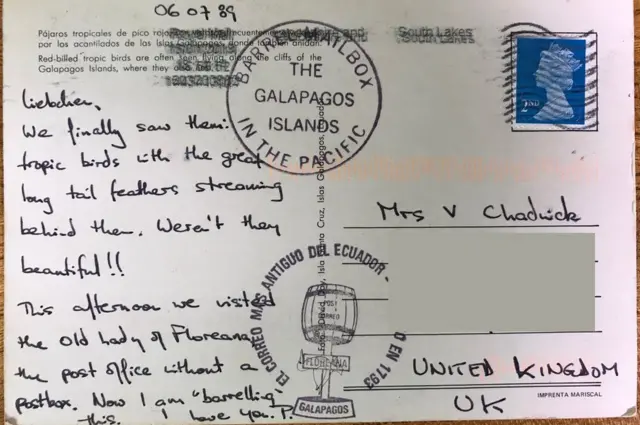 06 07 89
Pájaros tropicales de pico
por los acantilados de las Islas Galápagos donde anidan.
Red-billed tropic birds are often seen flying along the cliffs of the
Galapagos Islands, where they
South Lakes
BARREL MAILBOX
THE
GALAPAGOS
ISLANDS
IN THE PACIFIC
2ND
Liebchen,
We finally saw them:
tropic birds with the great
long tail feathers streaming
behind them. Weren't they
beautiful!!
This afternoon we visited
the old lady of Floreana,
the post office without a
postbox. Now I am "barrelling"
this. I love you. P.
Santa Cruz, Islas Galápagos, Ecuador
EL CORREO MAS ANTIGUO DEL ECUADOR
O EN 1793
POST
CORREO
FLOREANA
GALAPAGOS
Mrs V Chadwick
UNITED KINGDOM
UK
IMPRENTA MARISCAL